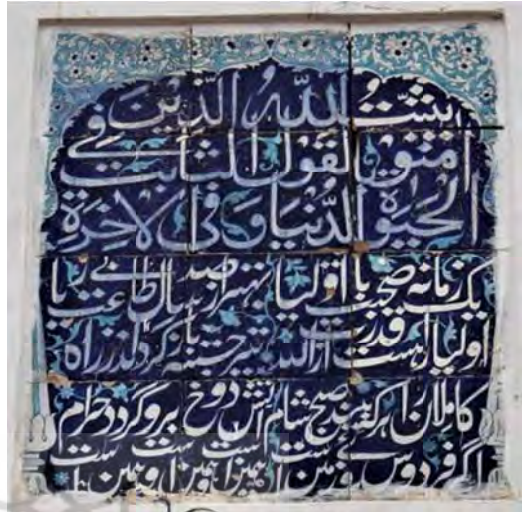 يثبت الله الذين
امنوا بالقول الثابت في
الحيوة الدنيا و في الاخرة
یک زمانہ صحبت با اولیا بہتر از صد سال طاعت بے ریا
اولیا را ہست قدرت از الہ تیر جستہ باز گرداند ز راہ
کاملان را ہر کہ بیند صبح شام آتش دوزخ برو گردد حرام
اگر فردوس بر روے زمین است ہمین است و ہمین است و ہمین است